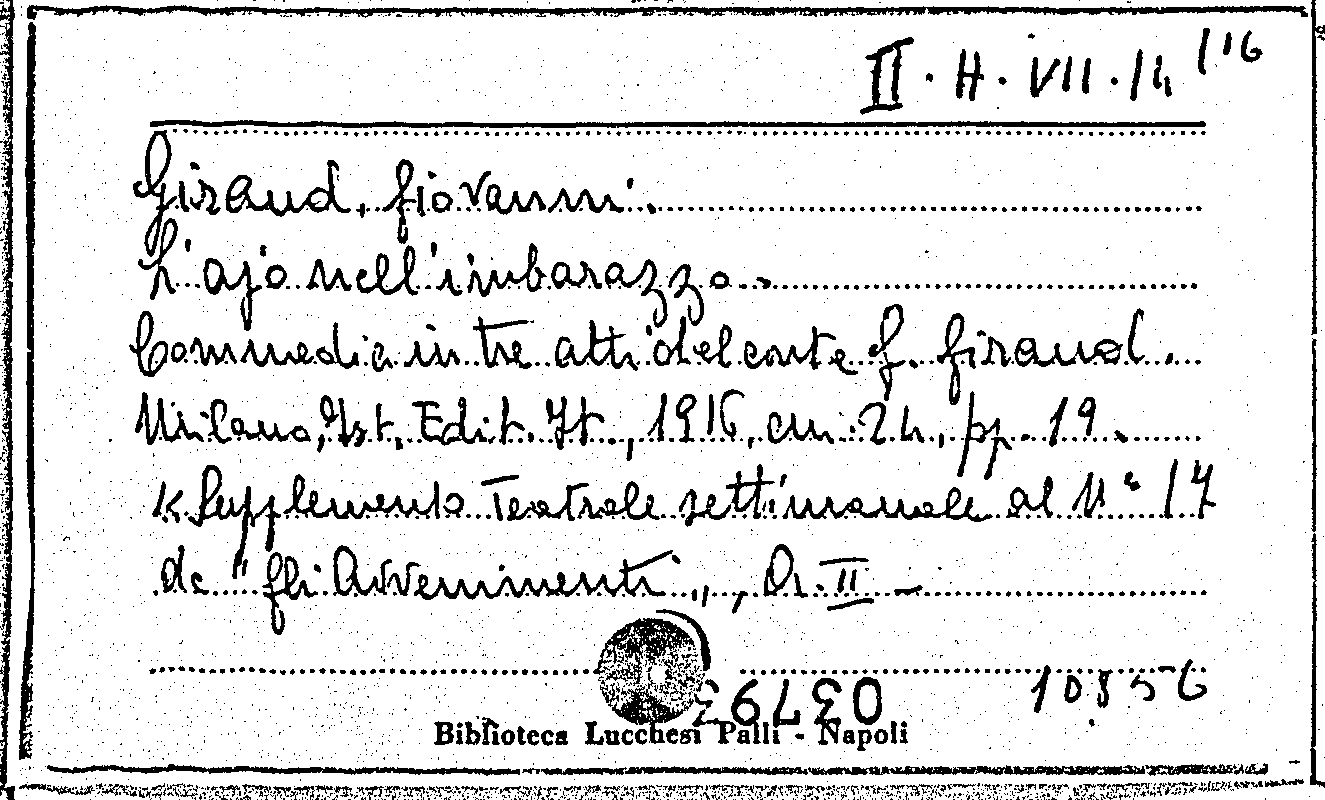 II. H. VII. 14 /16
Giraud, Giovanni.
L'ajo nell'imbarazzo.
Commedia in tre atti del conte G. Giraud.
Milano, Ist. Edit. It., 1916, cm. 24, pp. 19.
Supplemento Teatrale settimanale al N° 17
de "Gli Avvenimenti", A. II -
03793
10856
Biblioteca Lucchesi Palli - Napoli